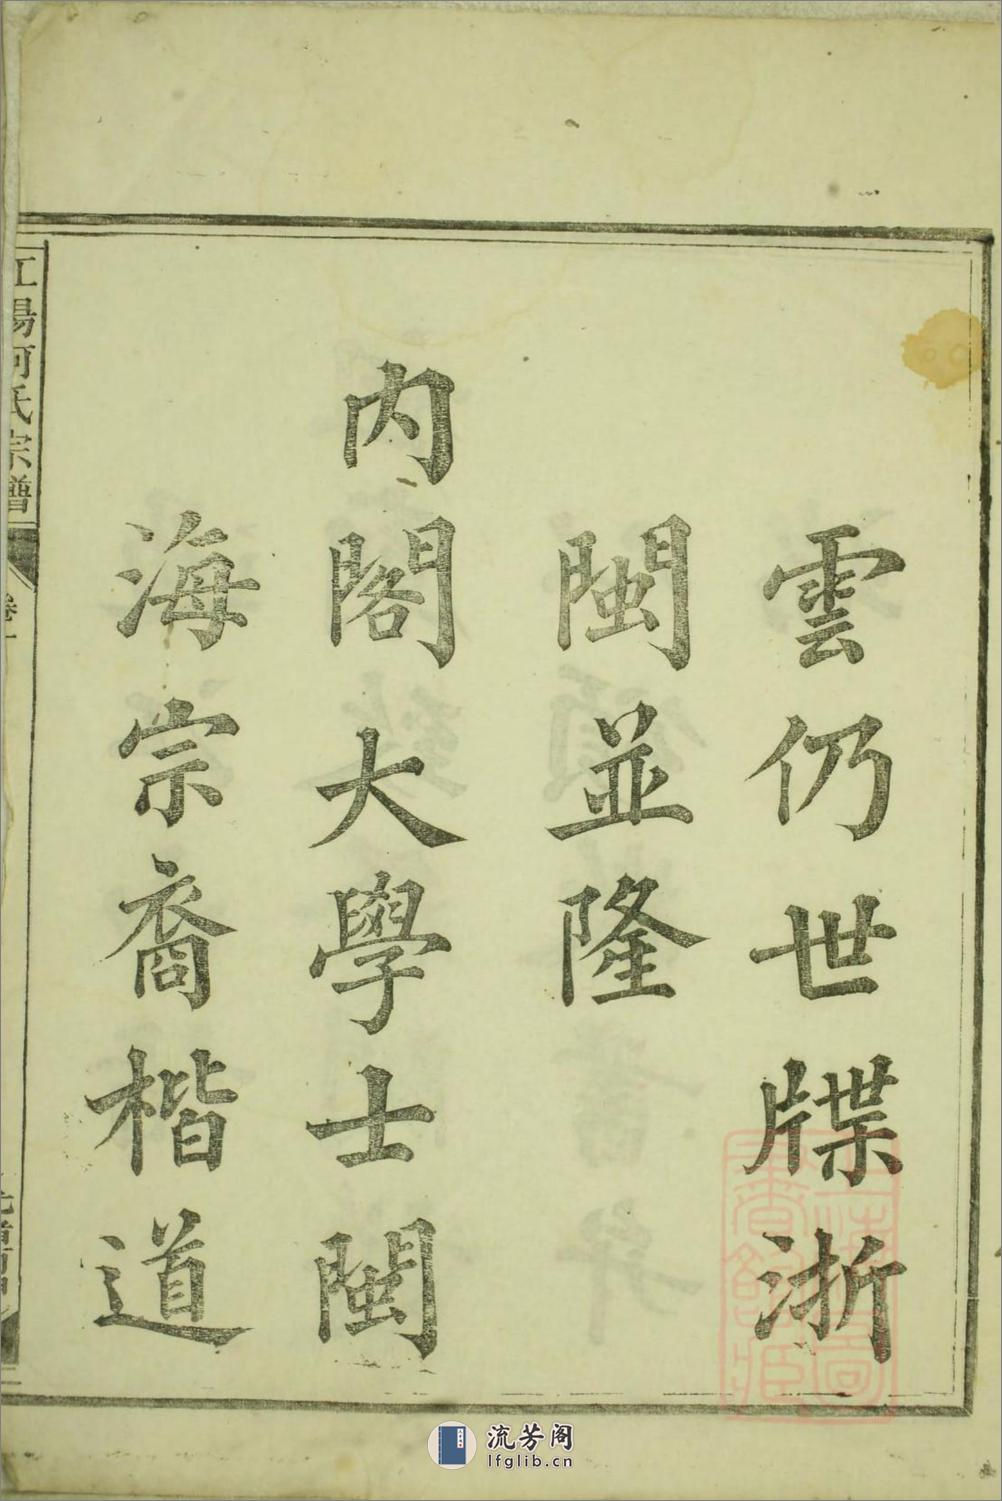 雲仍世牒浙
閩並隆
內閣大學士閩
海宗裔楷道
江陽何氏宗譜
卷一
流芳阁
lfglib.cn